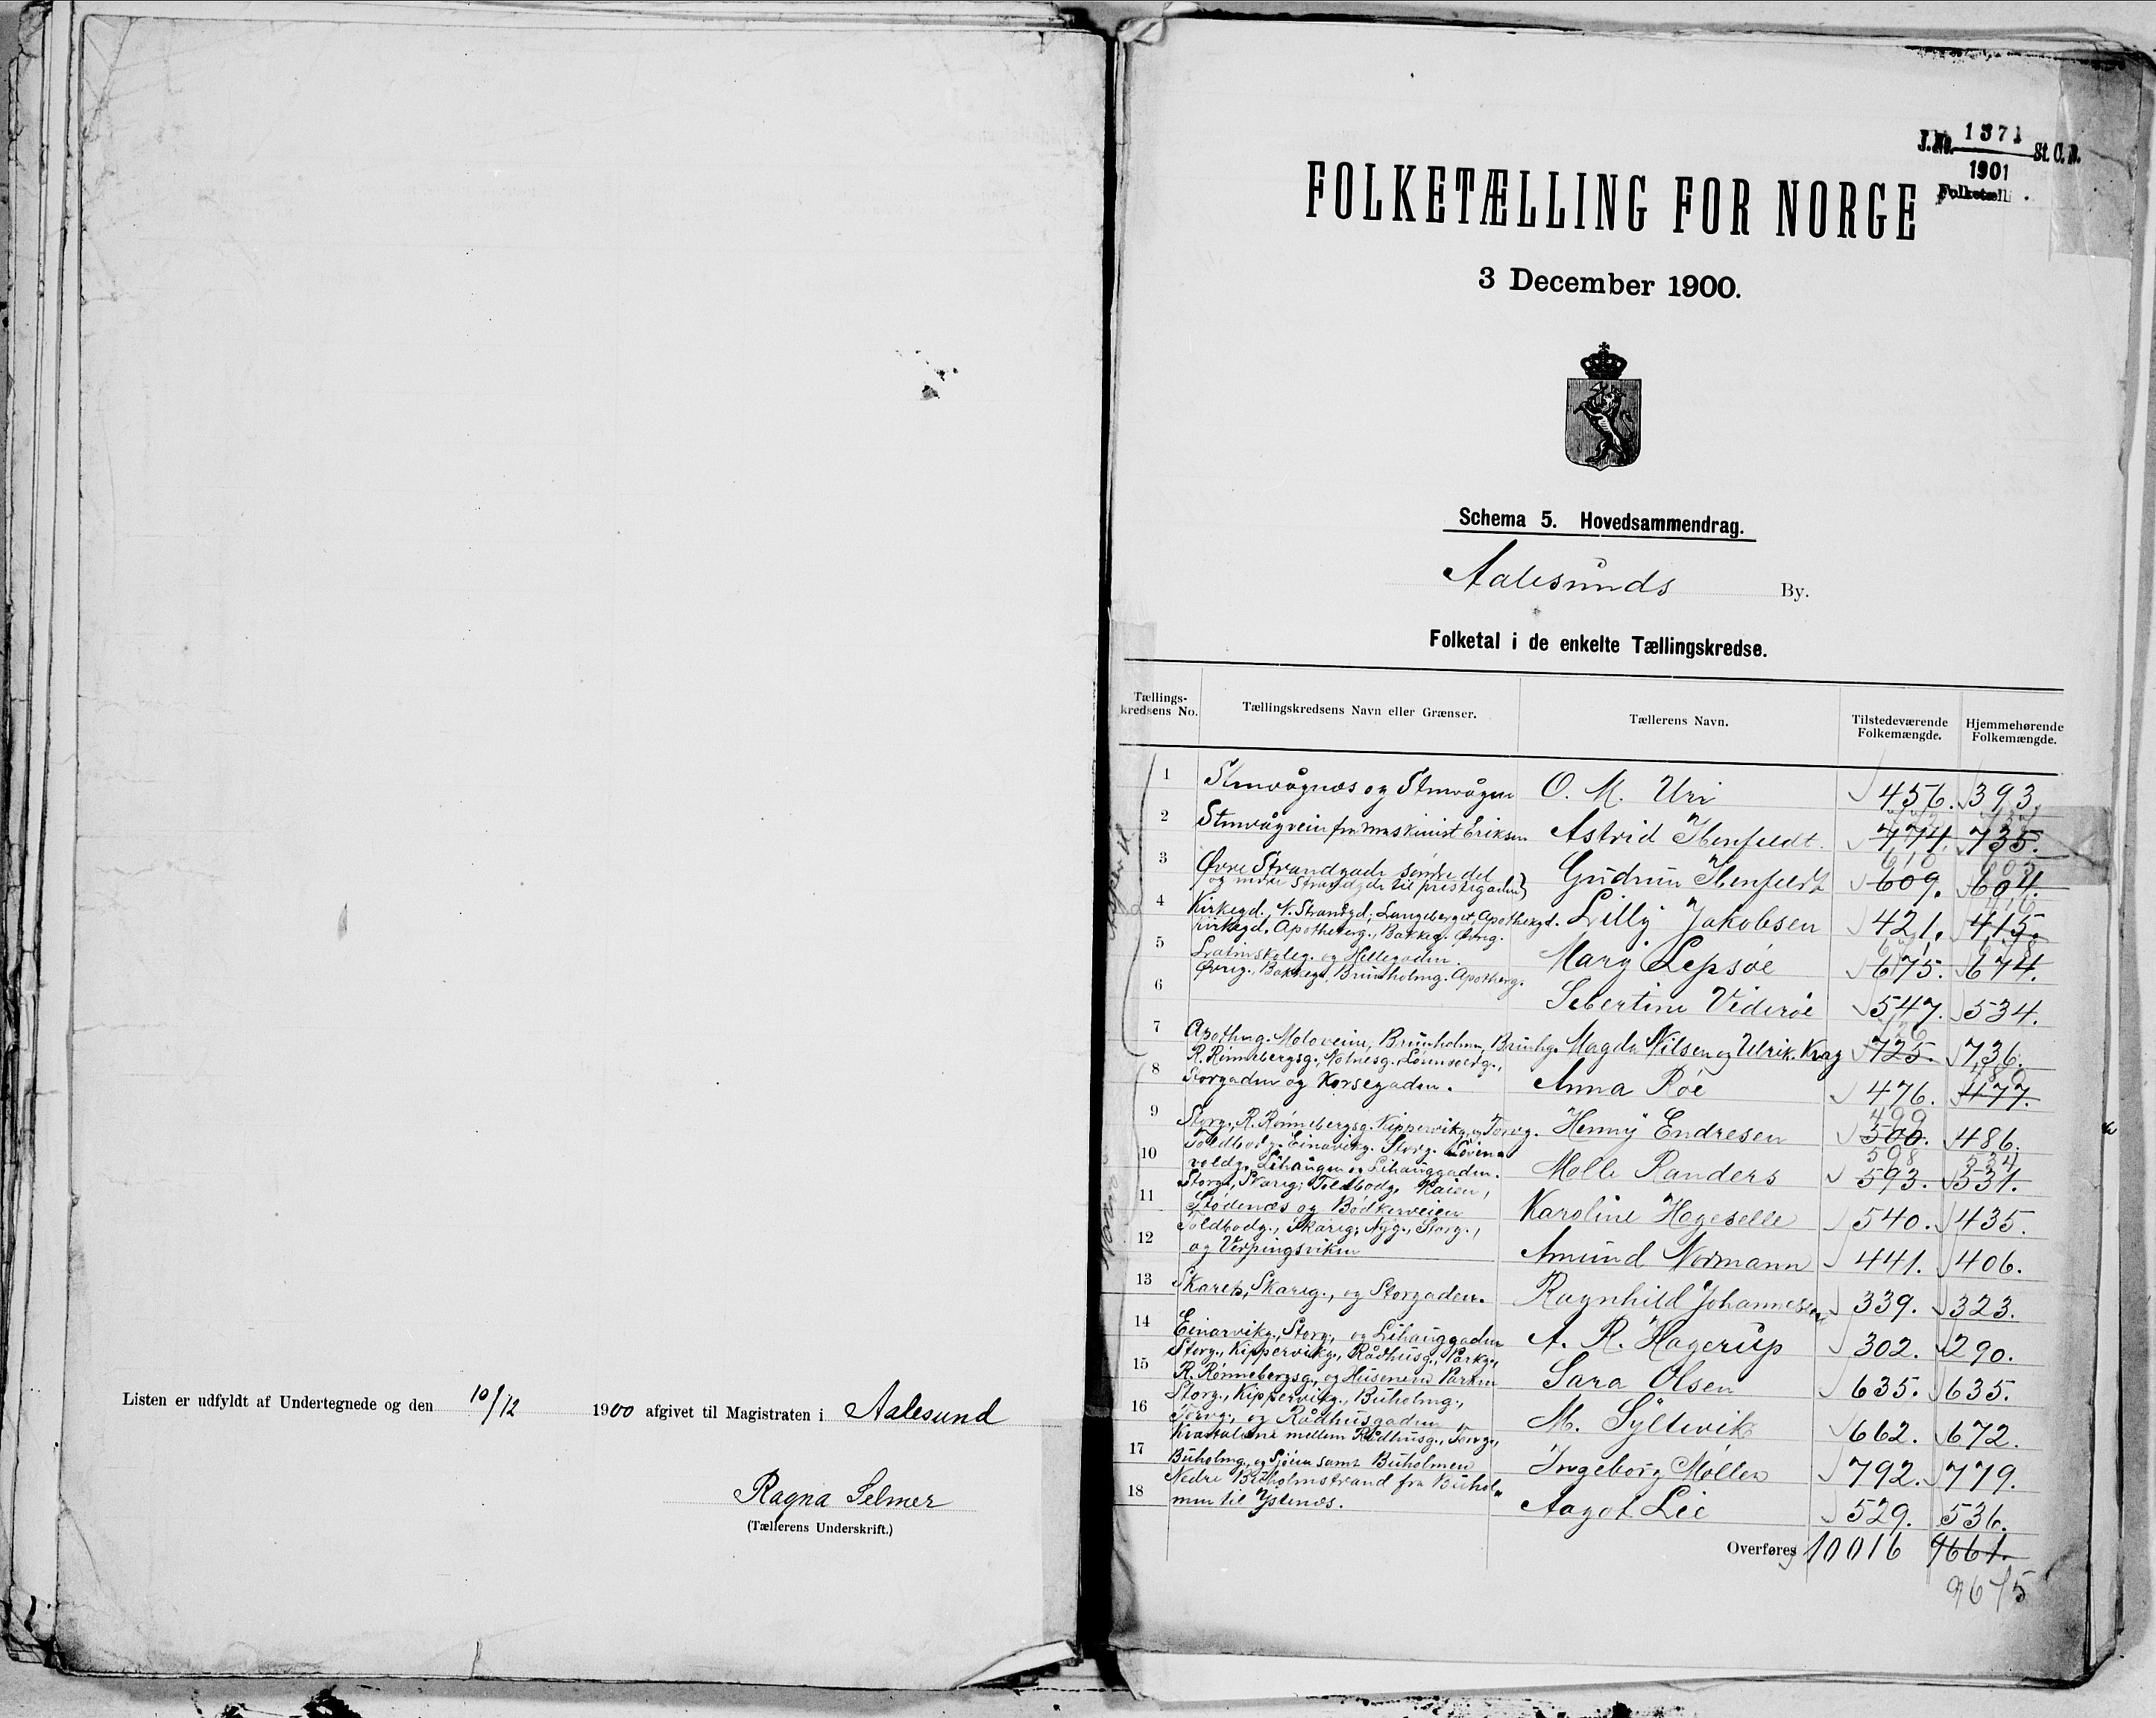 Listen er udfyldt af Undertegnede og den 10/12 1900 afgivet til Magistraten i Aalesund
Ragna Selmer
(Tællerens Underskrift.)
J. No. 1371 St. C. B.
1901
Folketæll.
FOLKETÆLLING FOR NORGE
3 December 1900.
Schema 5. Hovedsammendrag.
Aalesunds By.
Folketal i de enkelte Tællingskredse.
Tællings-kredsens No. Tællingskredsens Navn eller Grænser. Tællerens Navn. Tilstedeværende Folkemængde. Hjemmehørende Folkemængde.
1 Stenvågnæs og Stenvågen O. M. Uri 456. 393.
2 Stenvågvein fra Maskinist Eriksen Astrid Ibenfeldt. 774. 735.
3 Øvre Strandgade søndre del Gudrun Ibenfeldt 610 609. 603 604.
og nedre Strandgde til prestegaden
4 Kirkegd., N. Strandgd., Langeberget, Apothekgd. Lilly Jakobsen 421. 416 415.
5 Kirkegd. Apothekerg., Bakkeg. Øvreg. Mary Lepsøe 675. 678 674.
Latinskoleg. og Hellegaden.
6 Øvreg., Bakkegd. Brunholmg. Apotherg. Sebertine Viderøe 547. 534.
7 Apothug. Moloveien, Brunholmen, Brunhg. Magda Nilsen og Ulrik. Krag 726 725. 736.
8 R. Rønnebergsg., Notnesg., Lorenvoldg., Anna Røe 476. 477.
Storgaden og Korsegaden.
9 Storg., R. Rønnebergsg. Kippervikg. og Torvg. Henny Endresen 499 500. 486.
10 Toldbodg. Einarvikg. Storg. Loven Molle Randers 598 593. 534 531.
voldg. Lihaugen og Lihauggaden.
11 Storgd., Skarrig. Toldbodg. Kaien, Karoline Hogeselle 540. 435.
Stødenæs og Bødkerveien
12 Toldbodg., Skarig., Nyg., Storg., Amund Normann 441. 406.
og Verpingsviken
13 Skaret, Skarig., og Storgaden. Ragnhild Johannesen 339. 323.
14 Einarvikg., Storg., og Lihauggaden A. R. Hagerup 302. 290.
15 Storg., Kippervikg., Rådhusg., Parkg., Sara Olsen 635. 635.
R. Rønnebergsg., og Husenere Parken
16 Storg., Kippervikg., Buholmg., M. Syltevik 662. 672.
Torvg., og Rådhusgaden
17 Kvartalene mellem Rådhusg., Torvg., Ingeborg Møller 792. 779.
Buholmg., og Sjøen samt Buholmen
18 Nedre Buholmstrand fra Buhol- Aagot Lie 529. 536.
men til Ystenæs.
Overføres 10016 9661.
9675